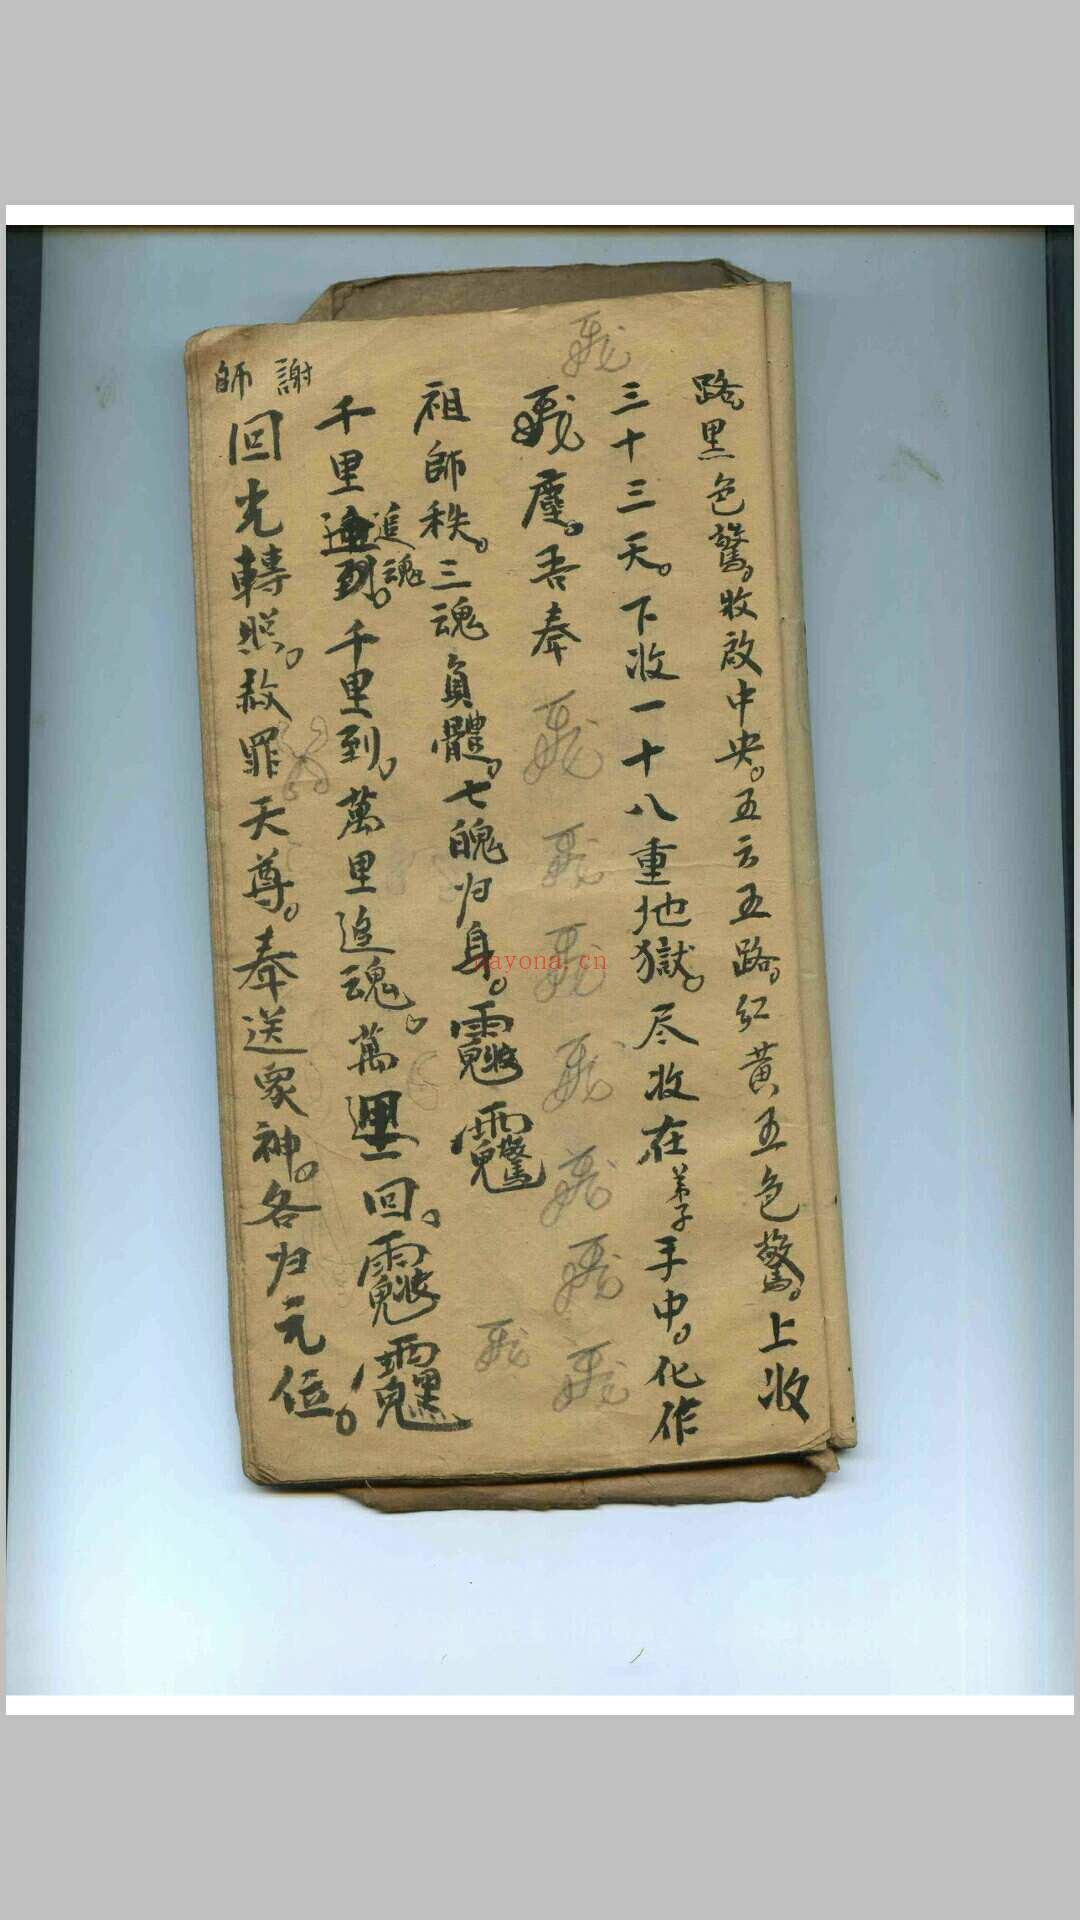 路黑色驚。收啟中央。五云五路。紅黃五色驚。上收
三十三天。下收一十八重地獄。尽收在弟子手中。化作
塵。吾奉
祖師秩。三魂負體。七魄归身。
千里追魂到。千里到。萬里追魂。萬里回。
謝師
回光轉照。赦罪天尊。奉送眾神。各归元位。
nayona.cn